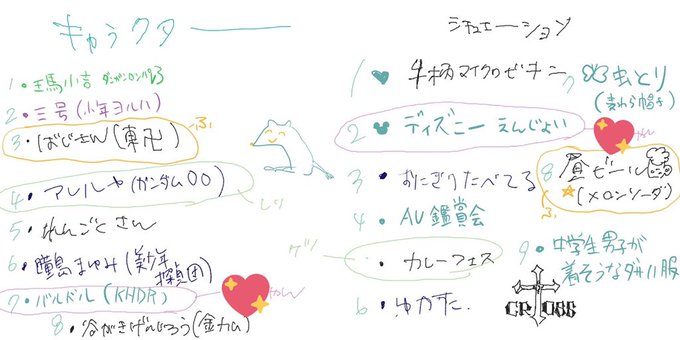 キャラクター
1・王馬小吉 ダンガンロンパV3
2・三号(少年ヨルハ)
3・ばじさん(東卍)
ふ,
4・アレルヤ(ガンダム00)
しり
5・れんごくさん
6・瞳島まゆみ(美少年探偵団)
7・バルドル(KHDR)
8・谷がきげんじろう(金カム)
シチュエーション
1 牛柄マイクロビキニ
2 ディズニーえんじょい
3・おにぎりたべてる
4・AV鑑賞会
・カレーフェス
6・ゆかた
7 虫とり
(麦わら帽子)
8 昼ビール
(メロンソーダ)
ふ,
9・中学生男子が
着そうなダサい服
CROSS